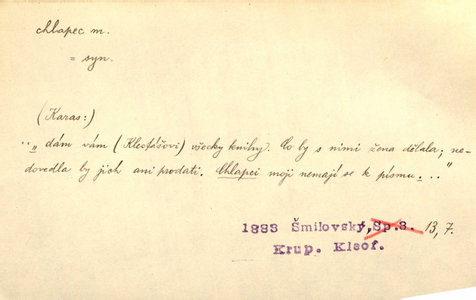 chlapec m.
= syn.
(Karas:)
..„dám vám (Kleofášovi) všecky knihy. Co by s nimi žena dělala; ne-
dovedla by jich ani prodati. Chlapci moji nemají se k písmu..."
1883 Šmilovský, Sp.3. 13,7.
Krup. Kleof.